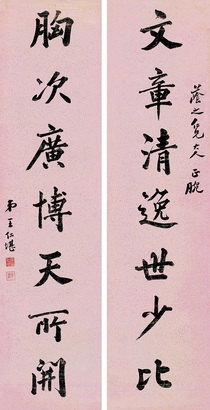 文章清逸世少比
蔭之仁兄大人正腕
胸次廣博天所開
弟王仁堪